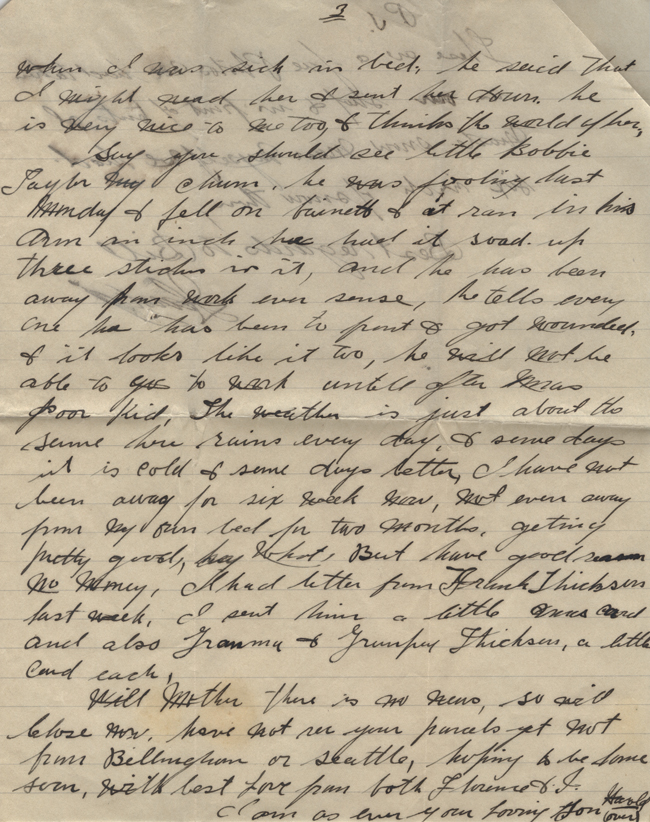 3
when I was sick in bed, he said that
I might read her & sent her down. he
is very nice to me too, & thinks the world of her,
Say you should see little Bobbie
Taylor my chum, he was fooling last
Munday & fell on & it ran in his
arm an inch he had it up
three stiches in it, and he has been
away from work ever sense, he tells every
one he has been to front & got wounded,
& it looks like it two, he will not be
able to to work untill after Xmas
poor Kid, The weather is just about the
same here rains every day, & some days
it is cold & some days better, I have not
been away for six week now, not even away
from my own bed for two months, geting
pretty good, hey What, But have good
no money, I had letter from Frank Thickson
last week, I sent him a little Xmas card
and also Granma & Grumpey Thickson, a little
card each,
Will Mother there is no news, so will
close now, have not rec your parcels yet not
from Bellingham or seattle, hoping to be some
soon, with best Love from both Florence & I.
I am as ever your loving Son Harold
(over)